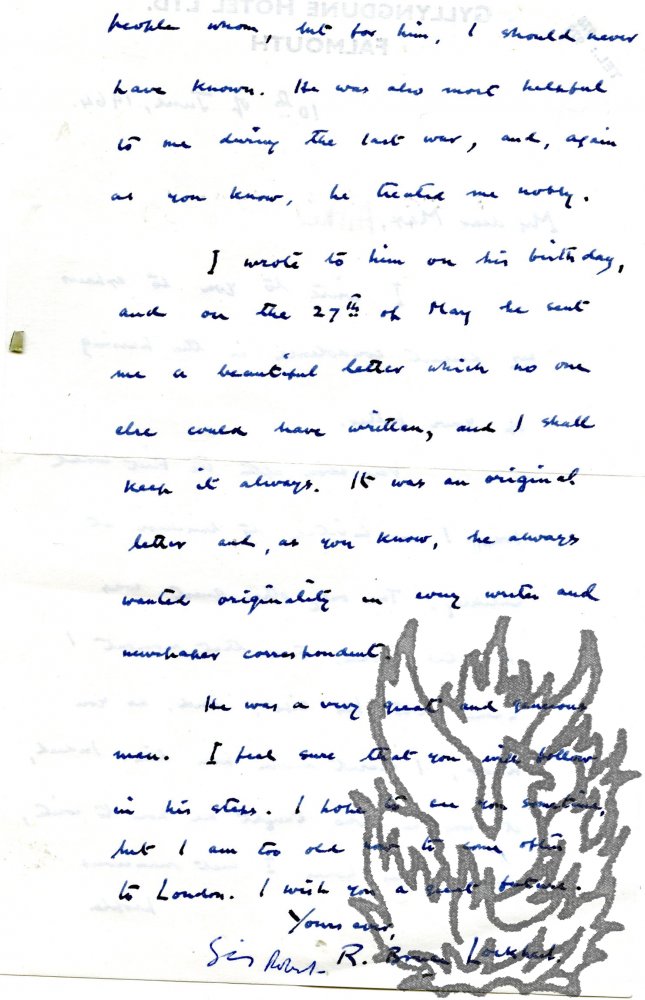 GYLLYNGDUNE HOTEL LTD.
FALMOUTH
TEL.
10th of June, 1964.
people whom, but for him, I should never
have known. He was also most helpful
to me during the last war, and, again
as you know, he treated me nobly.
My dear Max,
I wrote to him on his birthday,
and on the 27th of May he sent
me a beautiful letter which no one
else could have written, and I shall
keep it always. It was an original
letter and, as you know, he always
wanted originality in every writer and
newspaper correspondent.
He was a very great and generous
man. I feel sure that you will follow
in his steps. I hope to see you sometime,
but I am too old now to come often
to London. I wish you a great future.
Yours ever,
Sir Robert R. Bruce Lockhart.